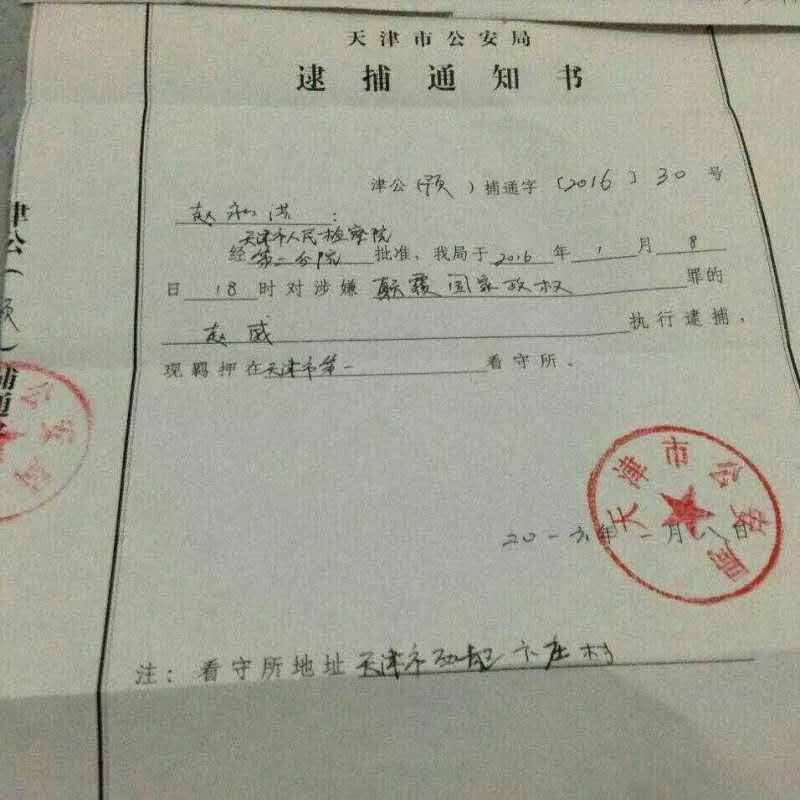 天津市公安局
逮捕通知书
津公(预)捕通字〔2016〕30号
赵:
天津市人民检察院
经第二分院批准,我局于2016年1月8
日18时对涉嫌颠覆国家政权罪的
赵威执行逮捕,
现羁押在天津市第一看守所。
天津市公安局
二0一六年一月八日
注:看守所地址天津市庄村
津公(预)捕通